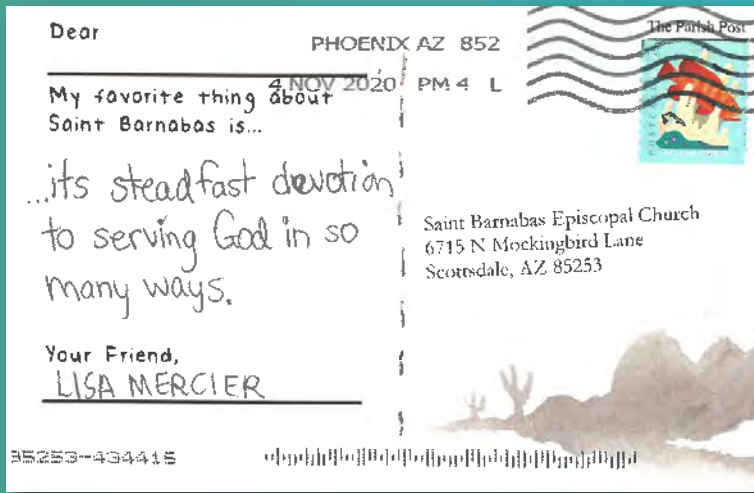 Dear
PHOENIX AZ 852
4 NOV 2020 PM 4 L
The Parish Post
My favorite thing about
Saint Barnabas is...
...its steadfast devotion
to serving God in so
many ways.
Your Friend,
LISA MERCIER
Saint Barnabas Episcopal Church
6715 N Mockingbird Lane
Scottsdale, AZ 85253
85253-434415